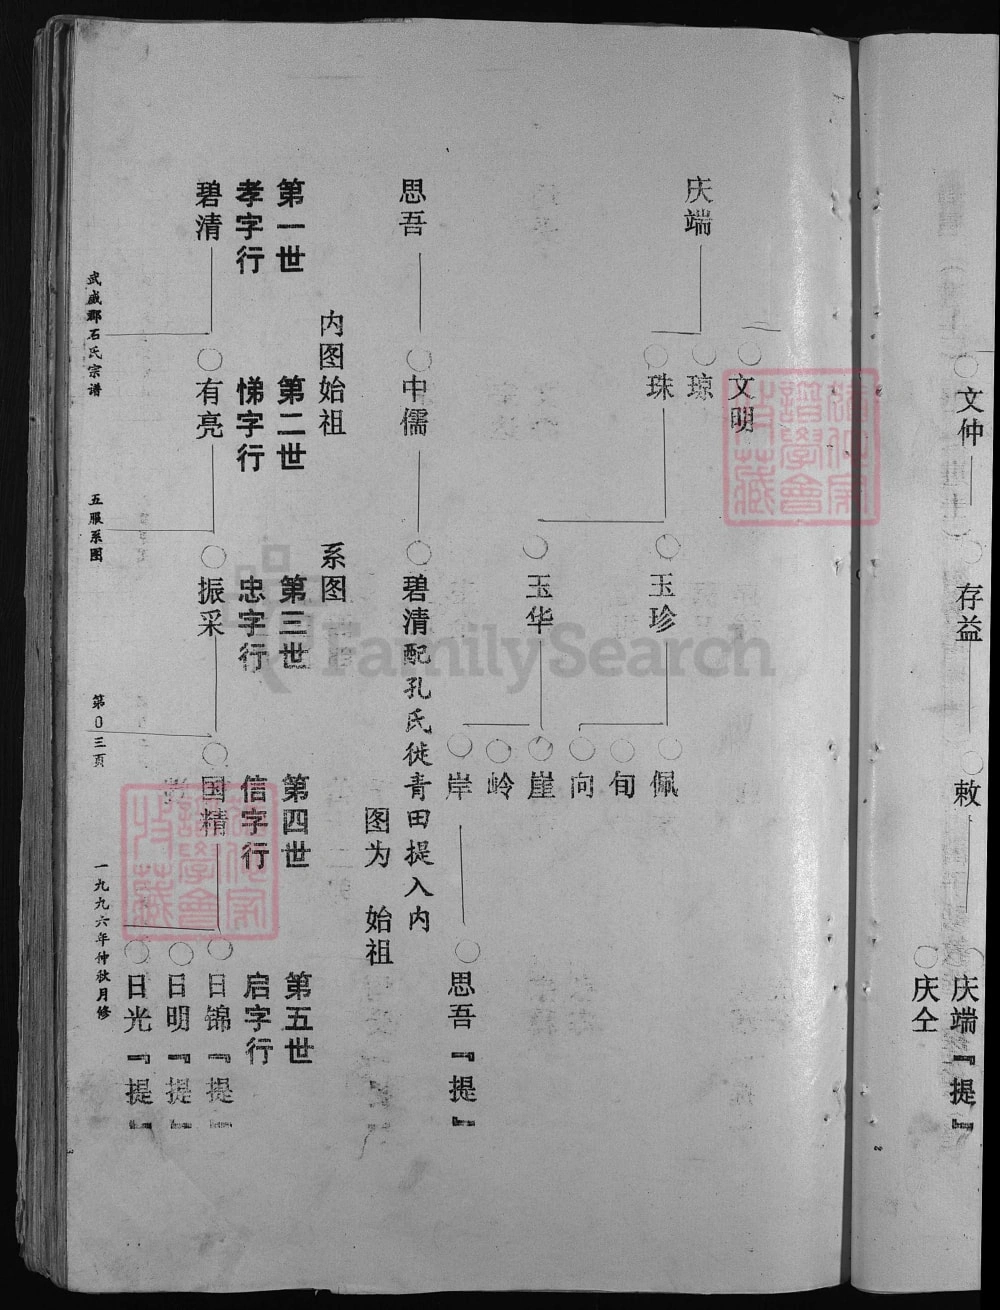 文仲
存益
敕
庆端『提』
庆仝
庆端
文明
琼
珠
玉珍
玉华
佩
旬
向
崖
岭
岸
思吾『提』
思吾
中儒
碧清配孔氏徙青田提入内
图为 始祖
内图始祖 系图
第一世 第二世 第三世 第四世 第五世
孝字行 悌字行 忠字行 信字行 启字行
碧清
有亮
振采
国精
日锦『提』
日明『提』
日光『提』
武威郡石氏宗谱 五服系图 第0三页 一九九六年仲秋月修
FamilySearch